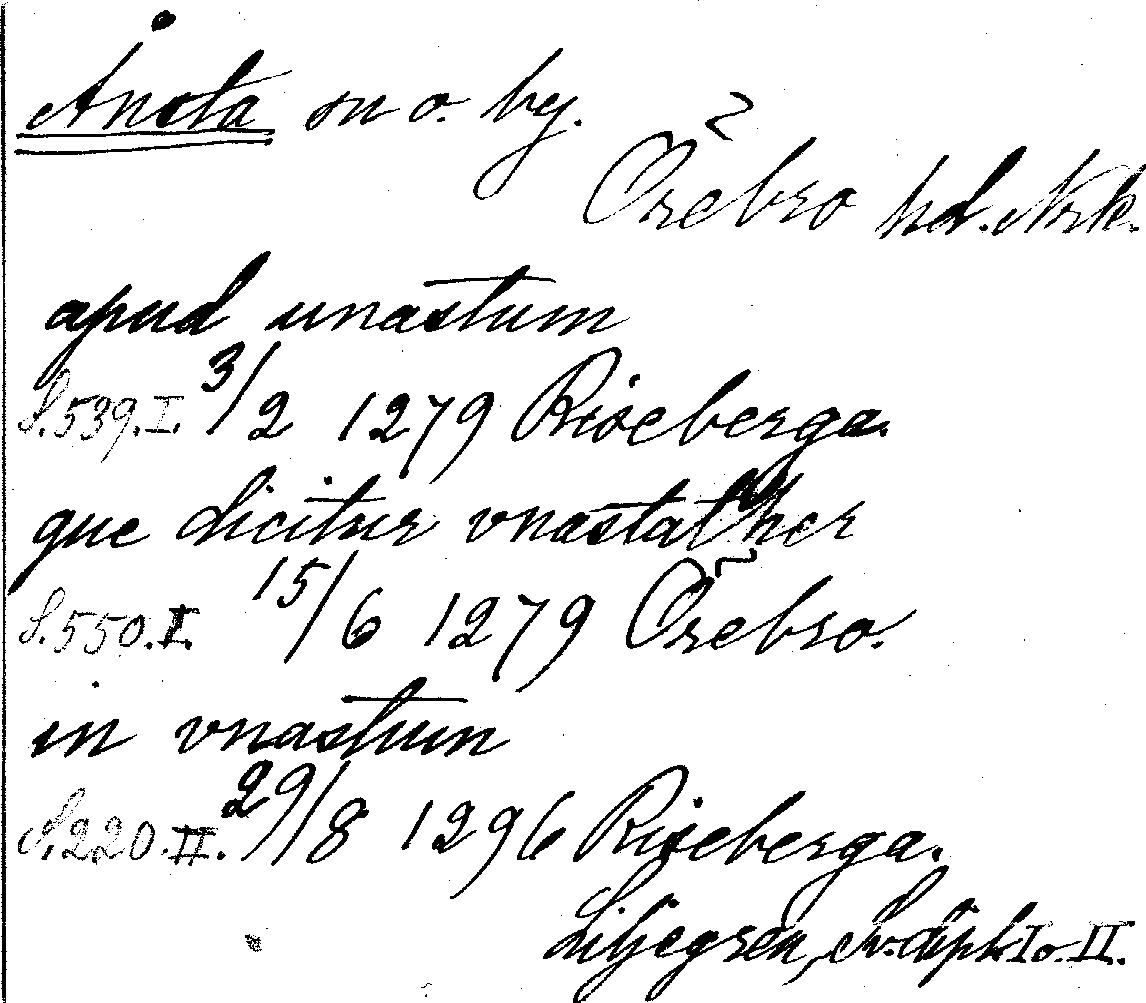 Ånsta sn o. by.
Örebro hd. Nrk.
apud unastum
S.539.I. 3/2 1279 Riseberga.
que dicitur vnastather
S.550.I. 15/6 1279 Örebro.
in vnastum
S.220.II. 29/8 1296 Riseberga.
Liljegren, Sv. dipl. I o. II.